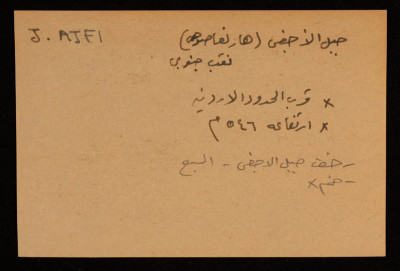 J. AJFI
جبل الأجفى (هار نحاصوص)
نقب جنوبي
× قرب الحدود الاردنية
× ارتفاعه ٥٤٦ م
- جبل الاجفى - السبع